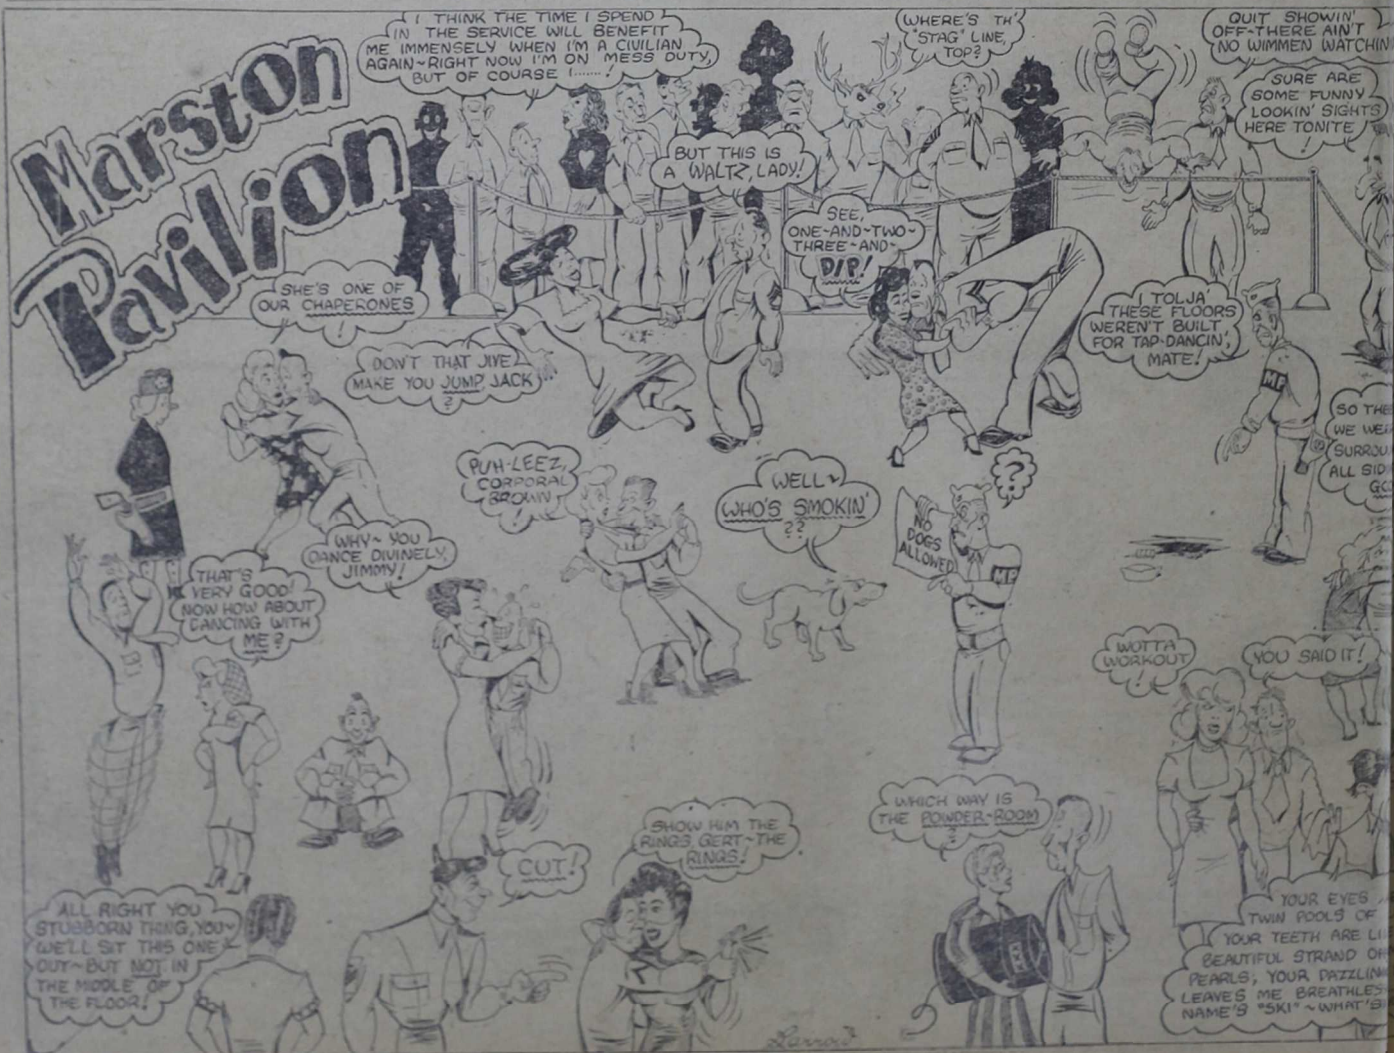 Marston
Pavilion
I THINK THE TIME I SPEND
IN THE SERVICE WILL BENEFIT
ME IMMENSELY WHEN I'M A CIVILIAN
AGAIN~RIGHT NOW I'M ON MESS DUTY,
BUT OF COURSE I......!
WHERE'S TH'
"STAG" LINE,
TOP?
QUIT SHOWIN'
OFF~THERE AIN'T
NO WIMMEN WATCHIN
SURE ARE
SOME FUNNY
LOOKIN' SIGHTS
HERE TONITE
!
BUT THIS IS
A WALTZ, LADY!
SEE,
ONE~AND~TWO~
THREE~AND~
DIP!
SHE'S ONE OF
OUR CHAPERONES
!
DON'T THAT JIVE
MAKE YOU JUMP, JACK
?
I TOLJA'
THESE FLOORS
WEREN'T BUILT
FOR TAP-DANCIN',
MATE!
MP
SO THE
WE WE
SURROU
ALL SID
PUH-LEEZ,
CORPORAL
BROWN
!
WELL~
WHO'S SMOKIN'
??
?
NO
DOGS
ALLOWED
MP
WHY~YOU
DANCE DIVINELY,
JIMMY!
THAT'S
VERY GOOD!
NOW HOW ABOUT
DANCING WITH
ME?
WOTTA
WORKOUT
!
YOU SAID IT!
CUT!
SHOW HIM THE
RINGS, GERT~THE
RINGS!
WHICH WAY IS
THE POWDER-ROOM
?
ALL RIGHT YOU
STUBBORN THING, YOU~
WE'LL SIT THIS ONE
OUT~BUT NOT IN
THE MIDDLE OF
THE FLOOR!
YOUR EYES
TWIN POOLS OF
YOUR TEETH ARE LI
BEAUTIFUL STRAND OF
PEARLS; YOUR DAZZLIN
LEAVES ME BREATHLES
NAME'S "SKI"~WHAT'S